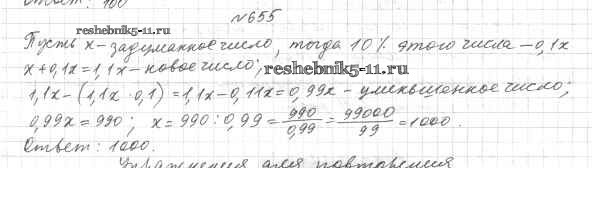 Ответ: 100
№655
reshebnik5-11.ru
Пусть x-задуманное число, тогда 10% этого числа -0,1x
x+0,1x=1,1x-новое число; reshebnik5-11.ru
1,1x-(1,1x·0,1)=1,1x-0,11x=0,99x-уменьшенное число;
0,99x=990; x=990:0,99=990/0,99=99000/99=1000.
Ответ: 1000.
Упражнения для повторения